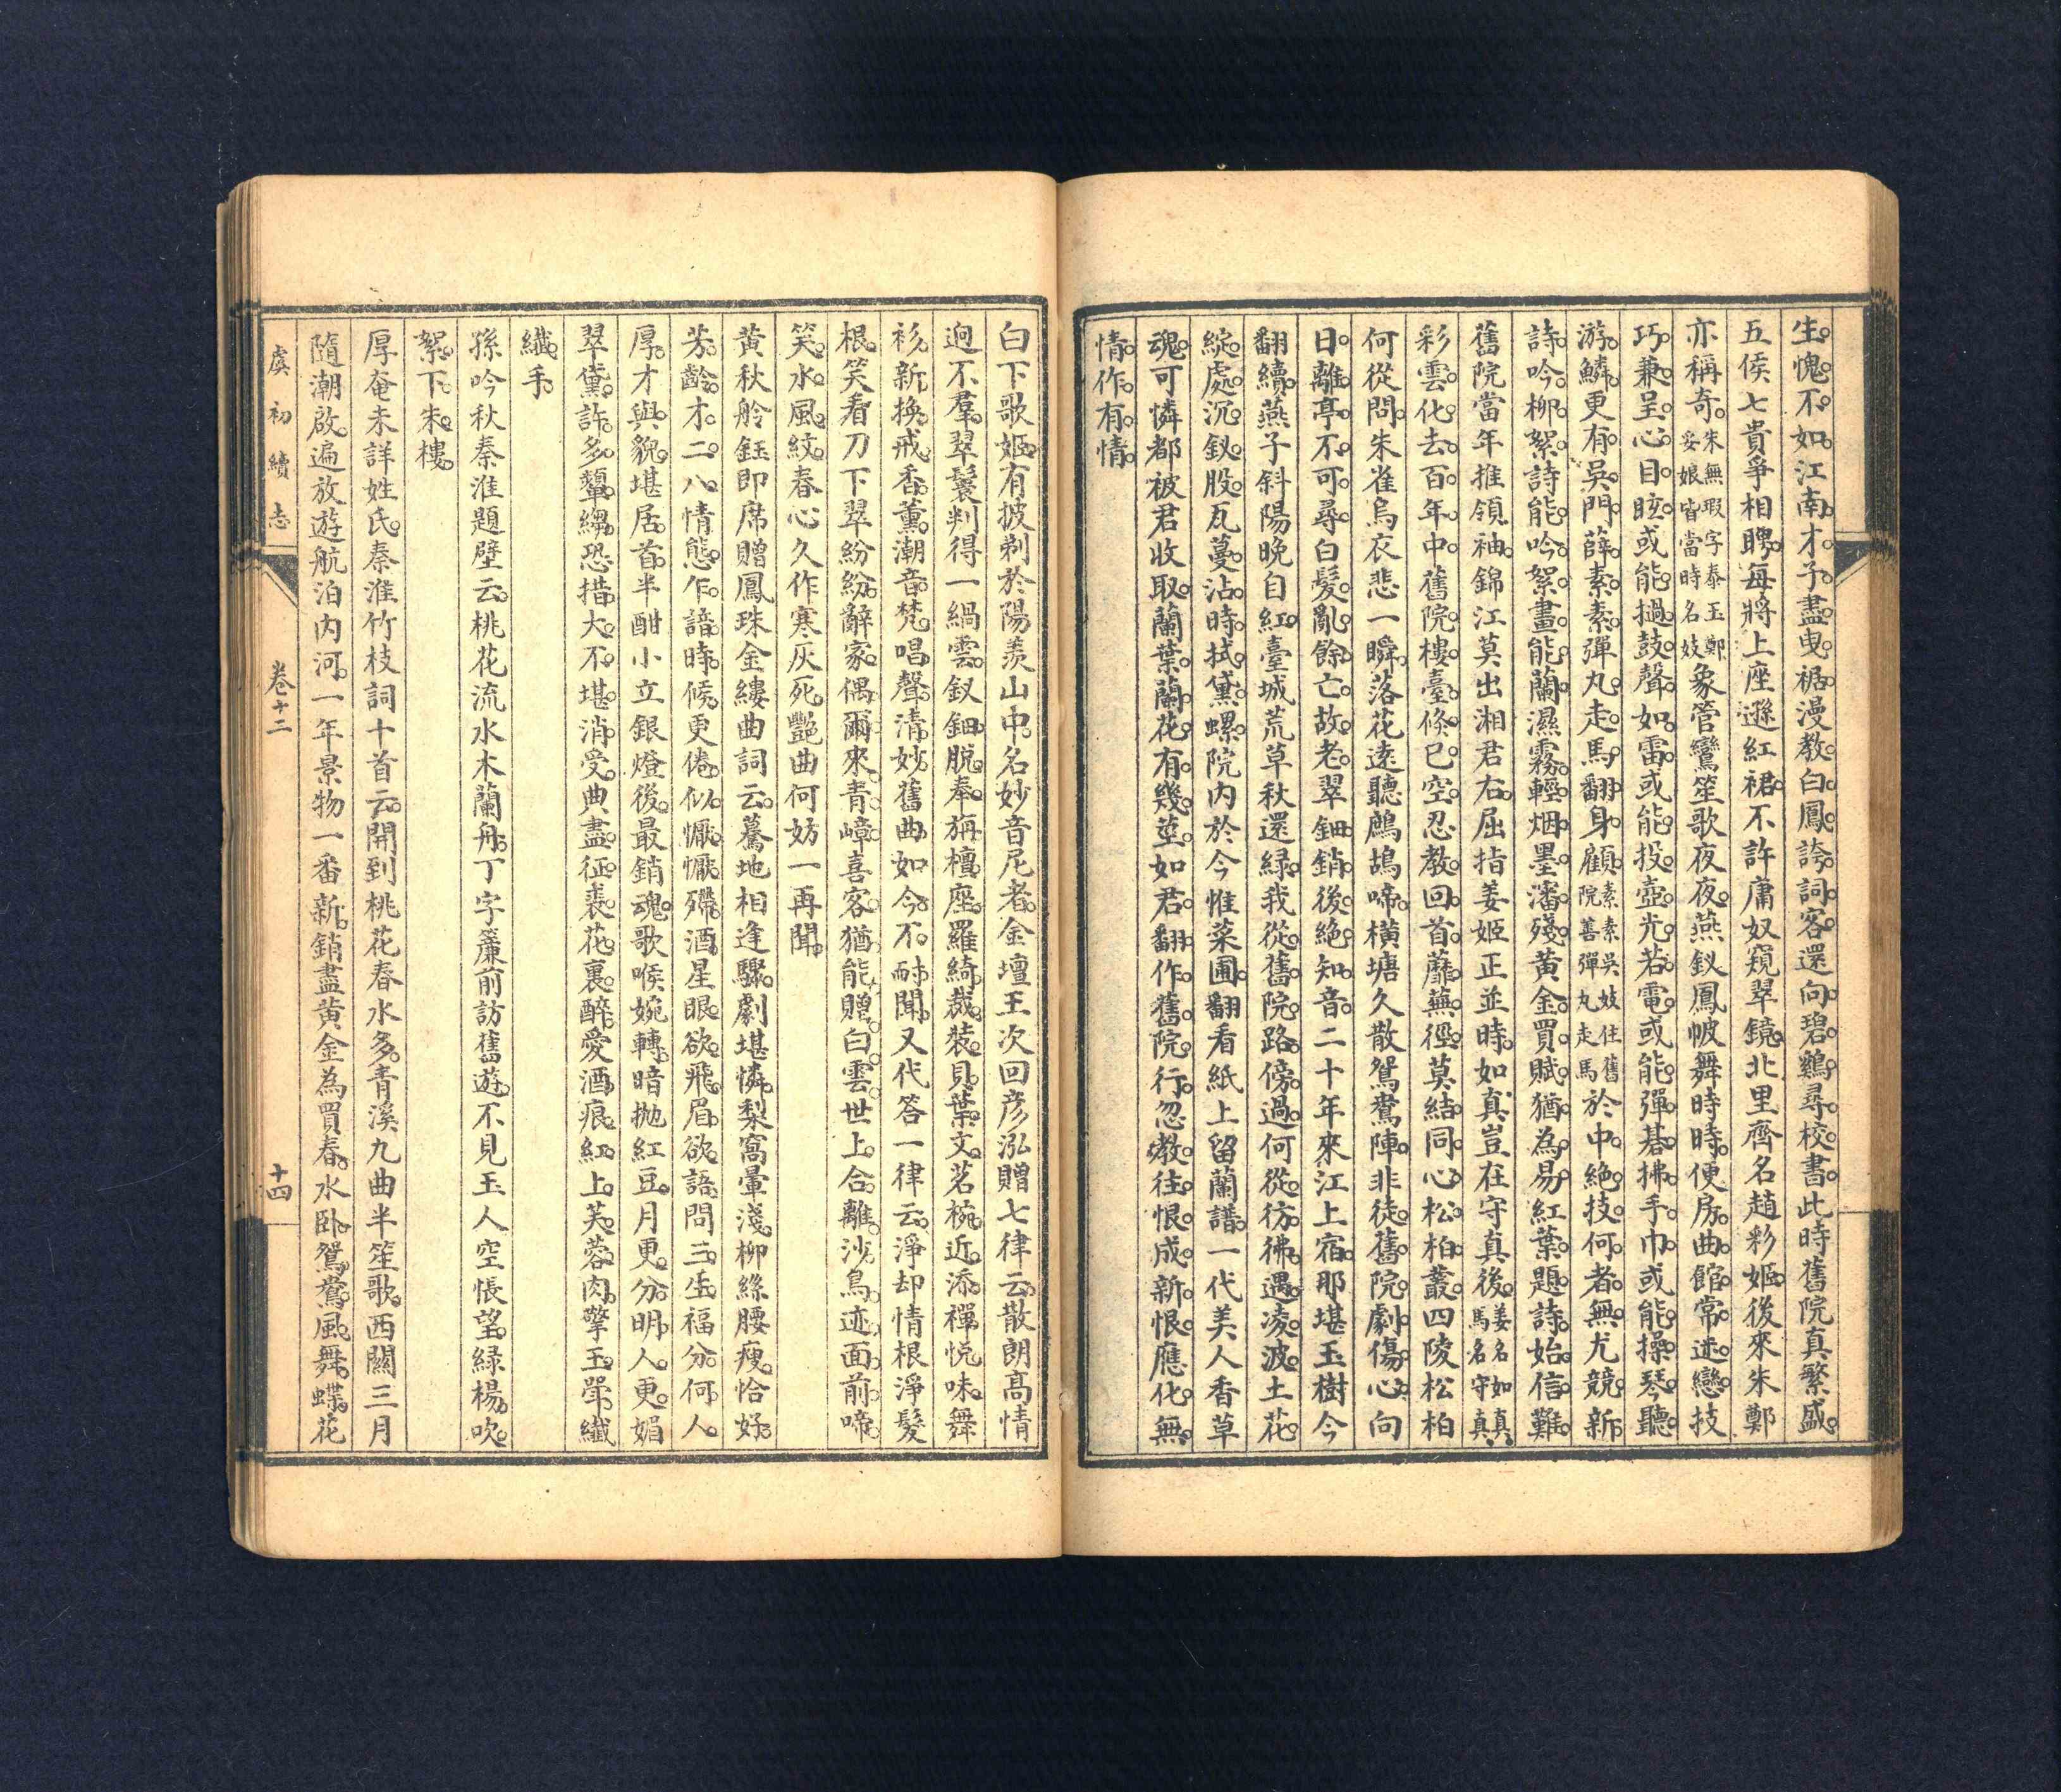 生愧不如江南才子盡曳裾漫教白鳳誇詞客還向碧鷄尋校書此時舊院真繁盛
五侯七貴爭相聘每將上座遜紅裙不許庸奴窺翠鏡北里齊名趙彩姬後來朱鄭
亦稱奇朱無瑕字泰玉鄭妥娘皆當時名妓象管鸞笙歌夜夜燕釵鳳帔舞時時便房曲館常迷戀技
巧兼呈心目眩或能撾鼓聲如雷或能投壺光若電或能彈碁拂手巾或能操琴聽
游鱗更有吳門薛素素彈丸走馬翻身顧素素吳妓住舊院善彈丸走馬於中絶技何者無尤競新
詩吟柳絮詩能吟絮畫能蘭濕霧輕烟墨瀋殘黄金買賦猶為易紅葉題詩始信難
舊院當年推領袖錦江莫出湘君右屈指姜姬正並時如真豈在守真後姜名如真馬名守真
彩雲化去百年中舊院樓臺倐已空忍教回首蘼蕪徑莫結同心松柏叢四陵松柏
何從問朱雀烏衣悲一瞬落花遠聽鷓鴣啼橫塘久散鴛鴦陣非徒舊院劇傷心向
日離亭不可尋白髮亂餘亡故老翠鈿銷後絶知音二十年來江上宿那堪玉樹今
翻續燕子斜陽晚自紅臺城荒草秋還緑我從舊院路傍過何從彷彿遇凌波土花
綻處沉釵股瓦蔓沾時拭黛螺院内於今惟菜圃翻看紙上留蘭譜一代美人香草
魂可憐都被君收取蘭葉蘭花有幾莖如君翻作舊院行忽教往恨成新恨應化無
情作有情
白下歌姬有披剃於陽羨山中名妙音尼者金壇王次回彥泓贈七律云散朗高情
迥不羣翠鬟判得一緺雲釵鈿脱奉旃檀座羅綺裁裝貝葉文茗椀近添禪悦味舞
衫新换戒香薰潮音梵唱聲清妙舊曲如今不耐聞又代答一律云淨却情根淨髮
根笑看刀下翠紛紛辭家偶爾來青嶂喜客猶能贈白雲世上合離沙鳥迹面前啼
笑水風紋春心久作寒灰死豔曲何妨一再聞
黄秋舲鈺即席贈鳳珠金縷曲詞云驀地相逢驟劇堪憐梨窩暈淺柳絲腰瘦恰好
芳齡才二八情態乍諳時候更倦似懨懨殢酒星眼欲飛眉欲語問三生福分何人
厚才與貌堪居首半酣小立銀燈後最銷魂歌喉婉轉暗抛紅豆月更分明人更媚
翠黛許多顰縐恐措大不堪消受典盡征裘花裏醉愛酒痕紅上芙蓉肉擎玉斝纖
纖手
孫吟秋秦淮題壁云桃花流水木蘭舟丁字簾前訪舊遊不見玉人空悵望緑楊吹
絮下朱樓
厚奄未詳姓氏秦淮竹枝詞十首云開到桃花春水多青溪九曲半笙歌西關三月
隨潮啟遍放遊航泊内河一年景物一番新銷盡黄金為買春水卧鴛鴦風舞蝶花
虞初續志 卷十二 十四